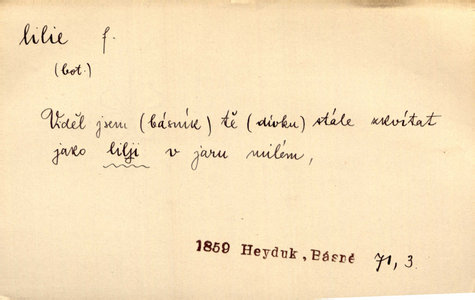 lilie f.
(bot.)
Viděl jsem (básník) tě (dívku) stále zkvítat
jako lilji v jaru milém,
1859 Heyduk, Básně 71, 3.